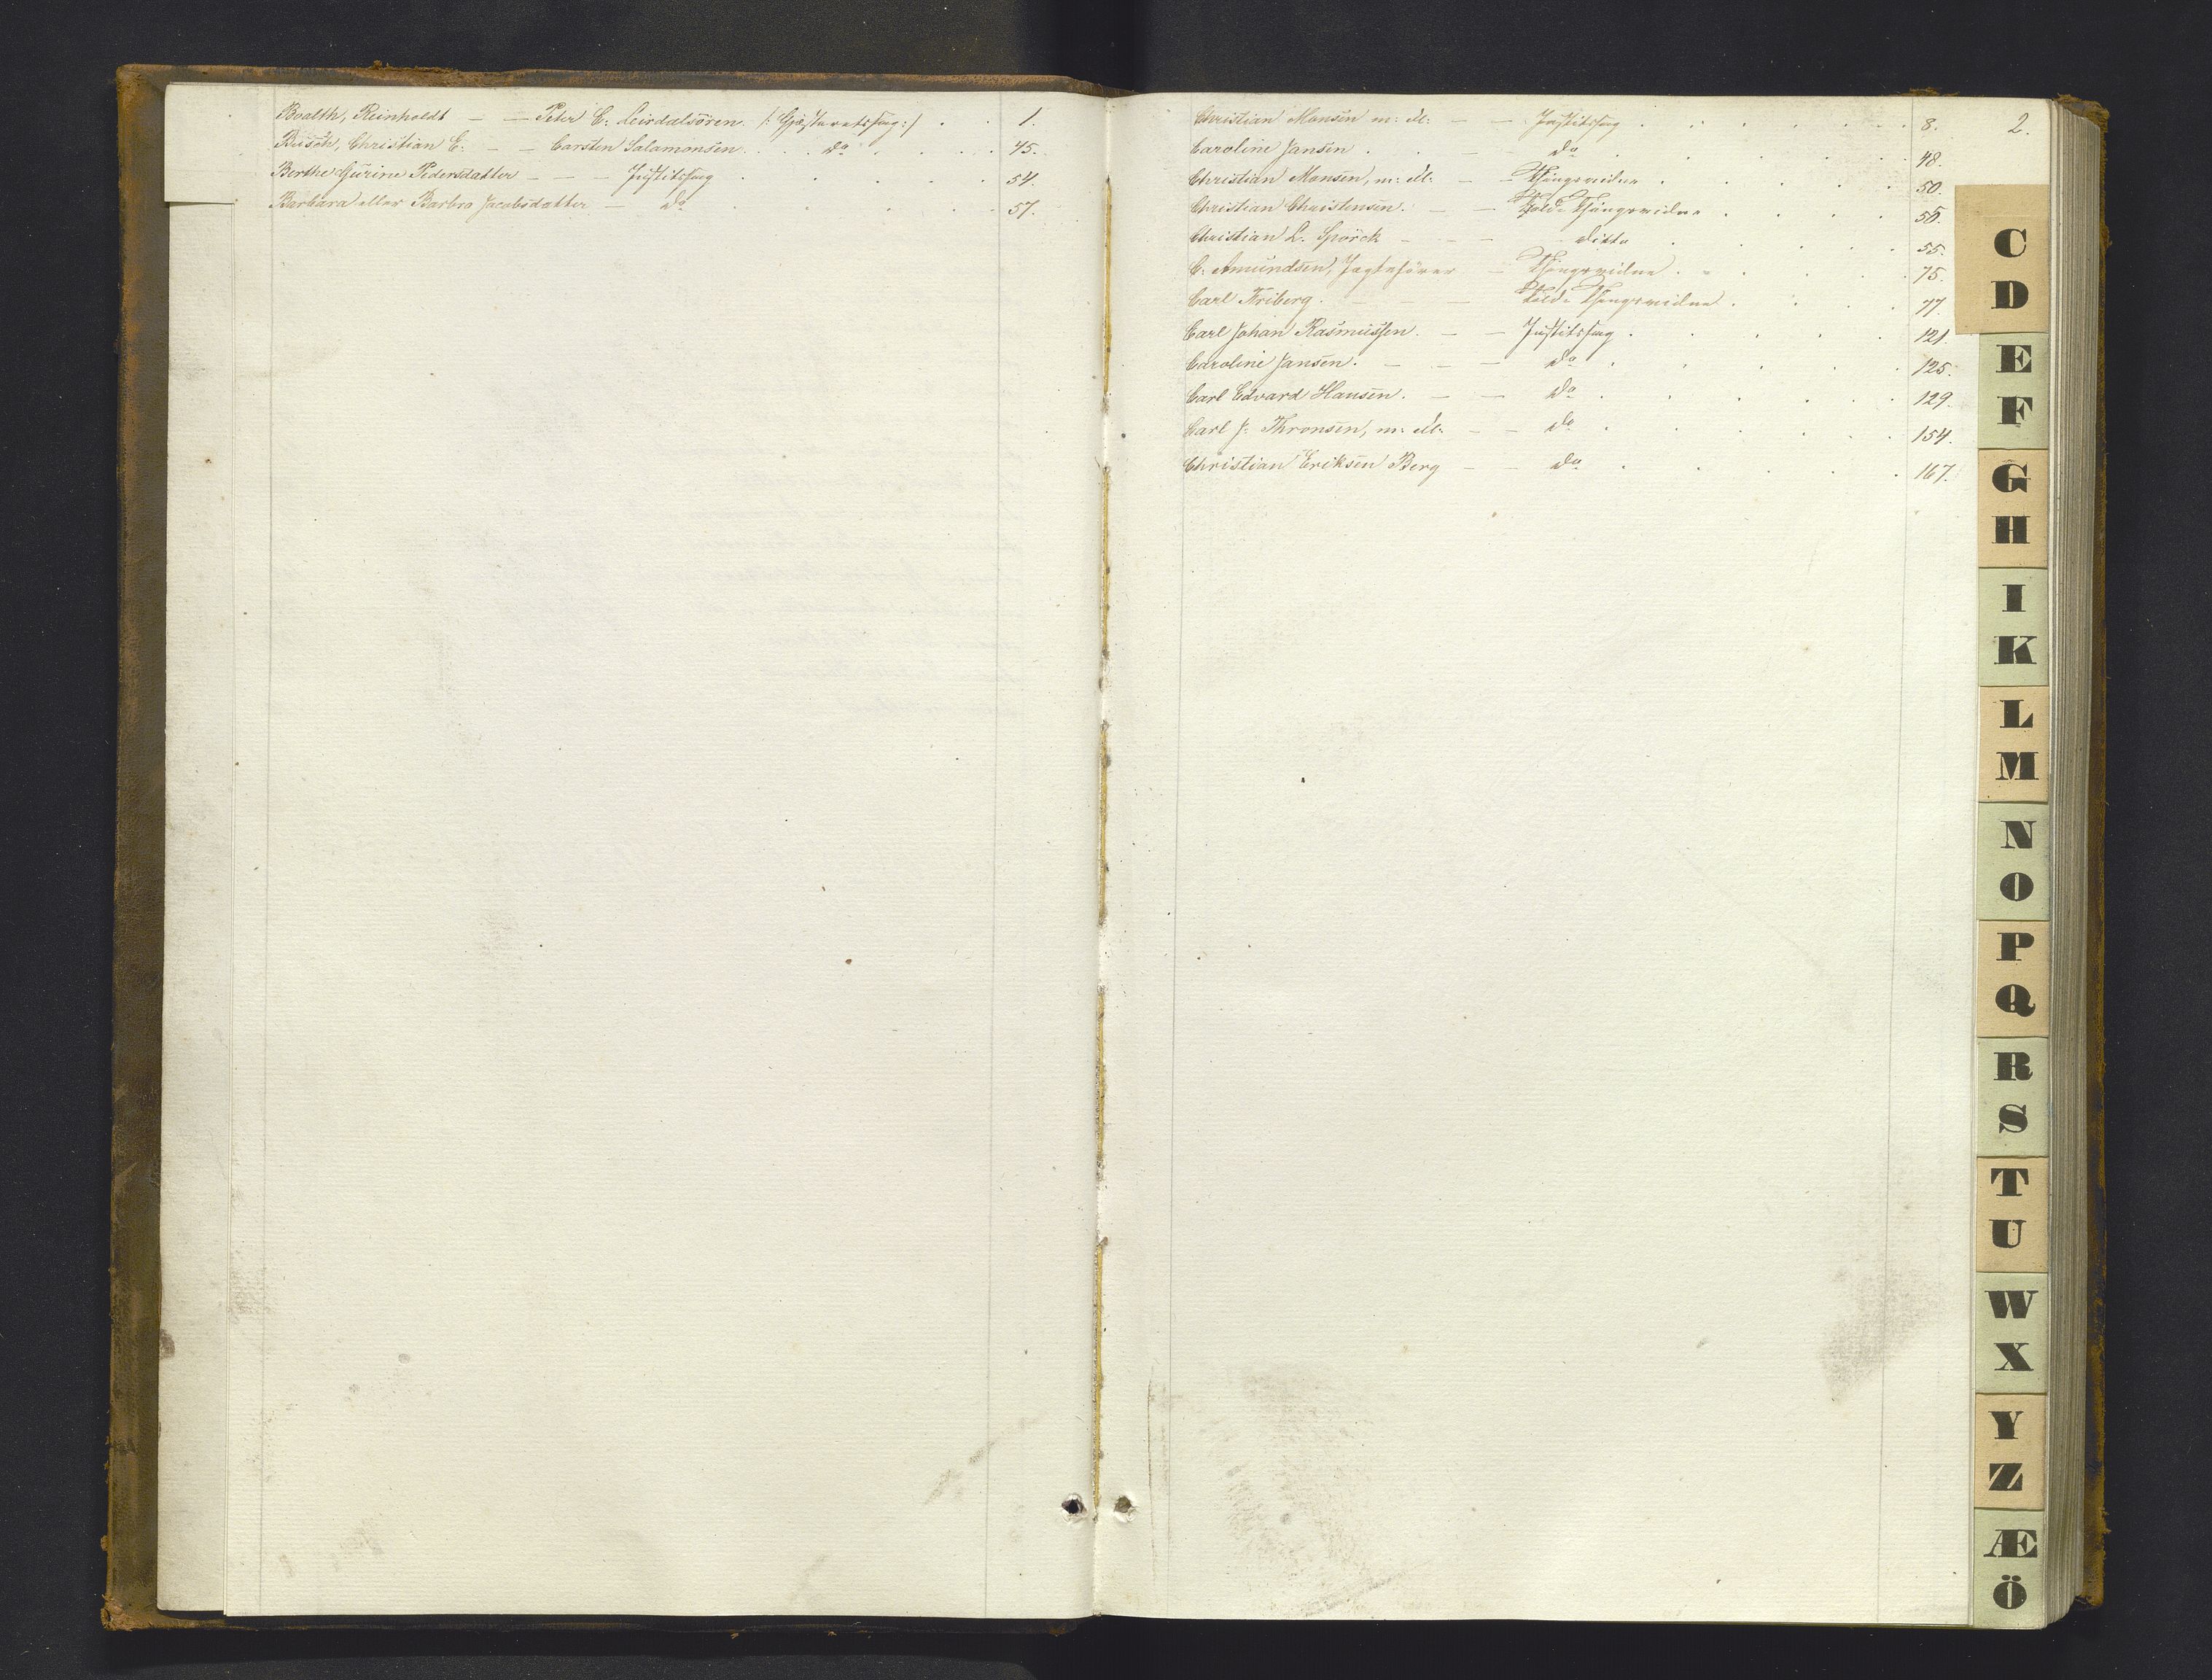 Boalth, Reinholdt — — Peter E. Leirdalsören. /: Gjæsteretssag :/ . . 1.
Büsch, Christian E. — — Carsten Salamonsen . . . do . . . . 45.
Berthe Gurine Pedersdatter — — — Justitssag . . . . . 54.
Barbara eller Barbro Jacobsdatter — do . . . . . 57.
2.
Christian Monsen m: Fl: — — Justitssag . . . . . . 8.
Caroline Jansen . . — do . . . . . 48.
Christian Monsen, m: Fl: — — Thingsvidne . . . . . 50.
Christian Christensen. — — Thingsvidne . . . . 55.
Christian L. Spörck — — — ditto . . . . 55.
C. Amundsen, Jagtefører — Thingsvidne . . . . . 75.
Carl Friberg. — — — Thingsvidne . . . . 77.
Carl Johan Rasmussen. — — Justitssag . . . . . 121.
Caroline Jansen. — — — do . . . . . 125.
Carl Edvard Hansen. — — do . . . . . 129.
Carl J. Thronsen, m: Fl: — — do . . . . . 154.
Christian Eriksen Berg — — do . . . . . 167.
C
D
E
F
G
H
I
K
L
M
N
O
P
Q
R
S
T
U
W
X
Y
Z
Æ
Ö